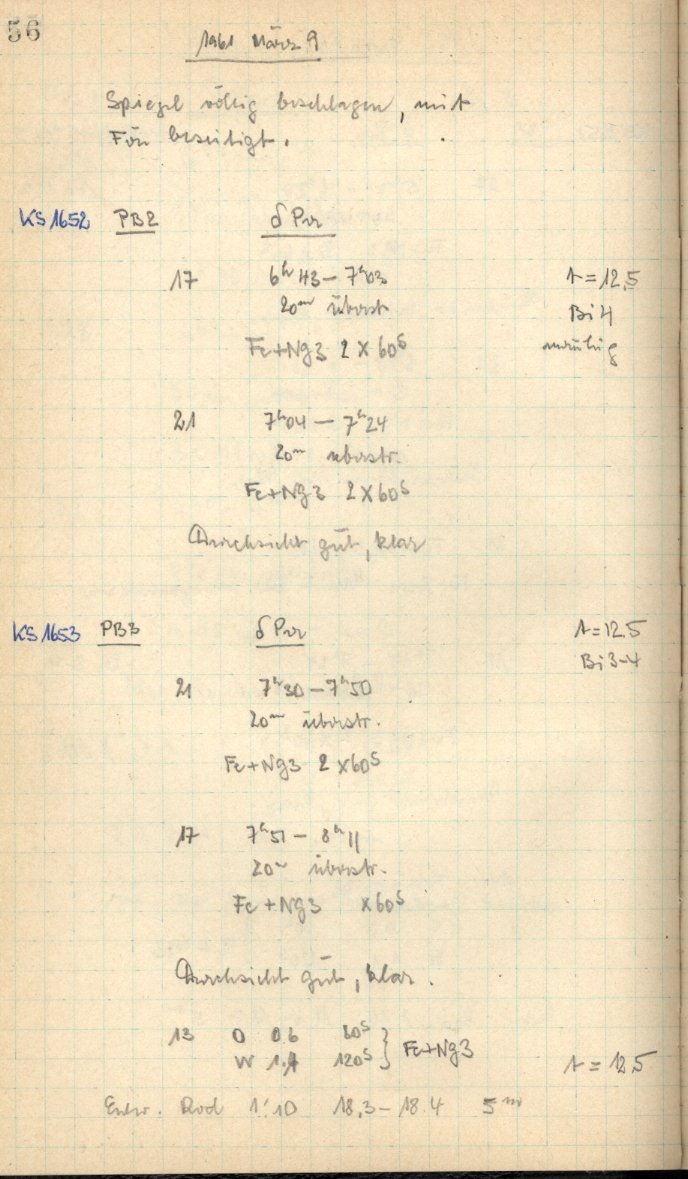 56
1961 März 9
Spiegel völlig beschlagen, mit
Fön beseitigt.
KS 1652 PB2 δ Per
17 6ʰ43 – 7ʰ03 t = 12,5
20ᵐ überstr. Bi 4
Fe+Ng3 2 x 60ˢ unruhig
21 7ʰ04 – 7ʰ24
20ᵐ überstr.
Fe+Ng3 2 x 60ˢ
Durchsicht gut, klar
KS 1653 PB3 δ Per t = 12.5
Bi 3-4
21 7ʰ30 – 7ʰ50
20ᵐ überstr.
Fe+Ng3 2 x 60ˢ
17 7ʰ51 – 8ʰ11
20ᵐ überstr.
Fe+Ng3 x 60ˢ
Durchsicht gut, klar.
13 O 0.6 80ˢ
W 1.4 120ˢ } Fe+Ng3 t = 12.5
Entw. Rod 1:10 18.3 – 18.4 5ᵐ